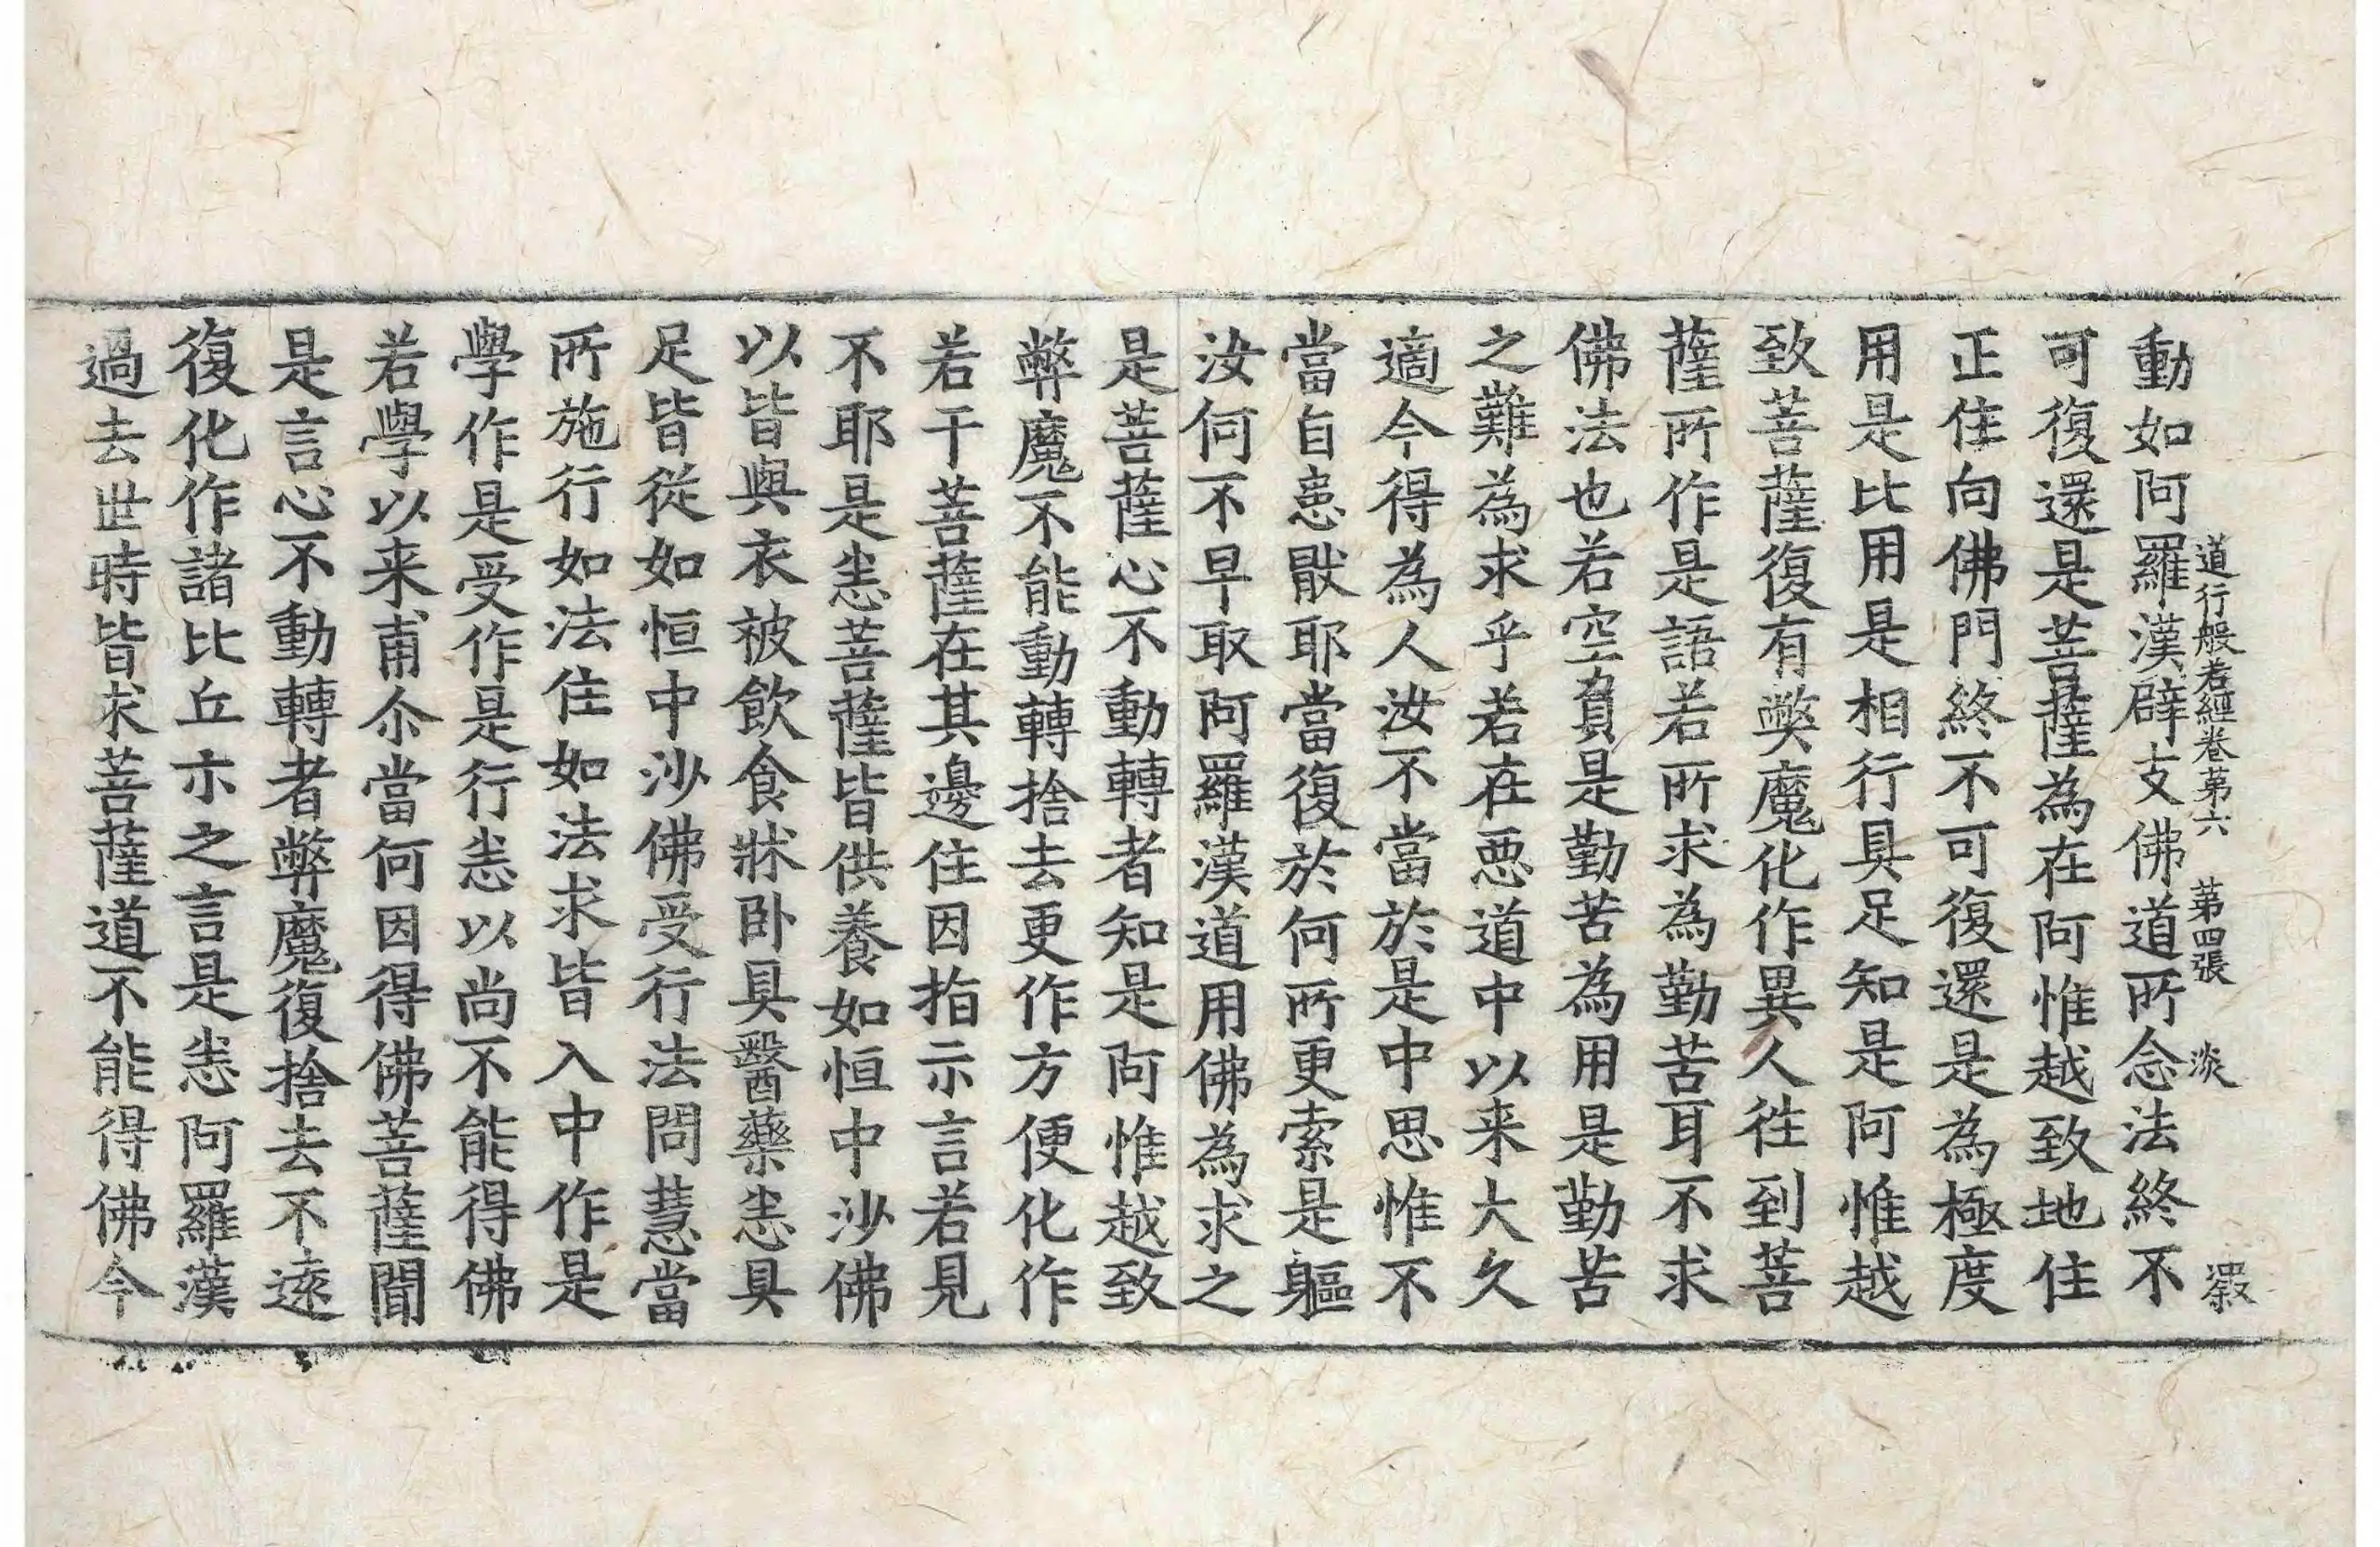 道行般若經卷苐六　苐四張　淡
動如阿羅漢辟支佛道所念法終不
可復還是菩薩為在阿惟越致地住
正住向佛門終不可復還是為極度
用是比用是相行具足知是阿惟越
致菩薩復有獘魔化作異人往到菩
薩所作是語若所求為勤苦耳不求
佛法也若空負是勤苦為用是勤苦
之難為求乎若在惡道中以来大久
適今得為人汝不當於是中思惟不
當自患猒耶當復於何所更索是軀
汝何不早取阿羅漢道用佛為求之
是菩薩心不動轉者知是阿惟越致
弊魔不能動轉捨去更作方便化作
若干菩薩在其邊住因指示言若見
不耶是恙菩薩皆供養如恒中沙佛
以皆與衣被飲食牀卧具醫藥恙具
足皆從如恒中沙佛受行法問慧當
所施行如法住如法求皆入中作是
學作是受作是行恙以尚不能得佛
若學以来甫尒當何因得佛菩薩聞
是言心不動轉者弊魔復捨去不遠
復化作諸比丘示之言是恙阿羅漢
過去世時皆求菩薩道不能得佛今